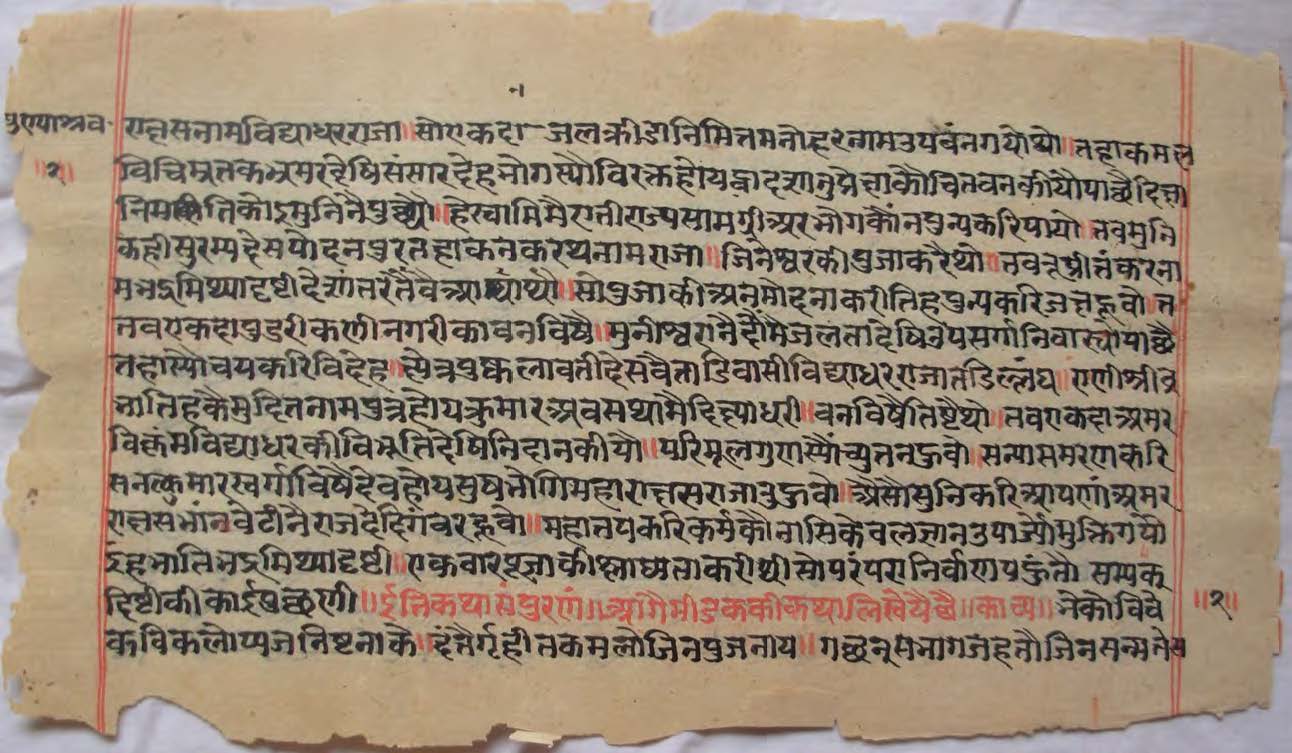 पुण्याश्रव
॥१॥
राक्षसनामविद्याधरराजा॥सोएकदा जलक्रीडानिमित्तमनोहरनामउपबंनगयोथो॥तहाकमल
विचिमृतकभ्रमरदेषिसंसारदेहभोगस्यौविरक्तहोयद्वादशानुप्रेक्षाकौचितवनकीयौपाछैदिक्षा
मुनिनैपुछ्यौ॥हेस्वामिमैएतीराज्यसामग्रीअरभोगकौंनपुन्यकरिपायो॥तवमुनि
कहीसुरम्यदेसपोदनपुरतहाकनकरथनामराजा॥जिनेश्वरकीपुजाकरैथो॥तवतूप्रीतंकरना
मभद्रमिथ्यादृष्टीदेशांतरतैंवैआयोथौ॥सोपुजाकीअनुमोदनाकरीतिहपुन्यकरिजक्षहूवो॥त
तवएकदापुडरीकणीनगरीकावनविषै॥मुनीश्वरानैदौंमैजलतादेषिउपसर्गनिवास्योपाछै
तहास्योचयकरिविदेहक्षेत्रपुष्कलावतीदेसवैताडिवासीविद्याधरराजातडिल्लंघ॥राणीश्रीप्र
भातिहकैमुदितनामपुत्रहोयकुमारअवसथामैदिक्ष्याधरी॥वनविषैतिष्टैथो॥तवएकदाअमर
विक्रंमविद्याधरकीविभूतिदेषिनिदानकीयौ॥परिमूलगुणस्यौंच्युतनहुवो॥सन्यासमरणकरि
सनत्कुमारस्वर्गविषैदेवहोयसुषभोगिमहाराक्षसराजातुहुवो॥अैसौसुनिकरिआपणांअमर
राक्षसभांनवेटीनैराजदेदिगंवरहूवो॥महातपकरिकर्मकौनासिकेवलज्ञानउपाज्यौंमुक्तिगयौ
ईहभातिभद्रमिथ्यादृष्टी॥एकवारपूजाकीश्लाघाताकरीथीसोपरंपरानिर्वाणपहुंतौ सम्यक्
दिष्टीकीकाईपुछणी॥ईतिकथासंपुरणं॥आगैमीडककीकथालिखैयैछै॥काव्य॥भेकोविवे
॥१॥
कविकलोप्यजनिष्टनाके॥दंतैर्गृहीतकमलोजिनपुजनाय॥गछन्सभागजहतौजिनसन्मतेस